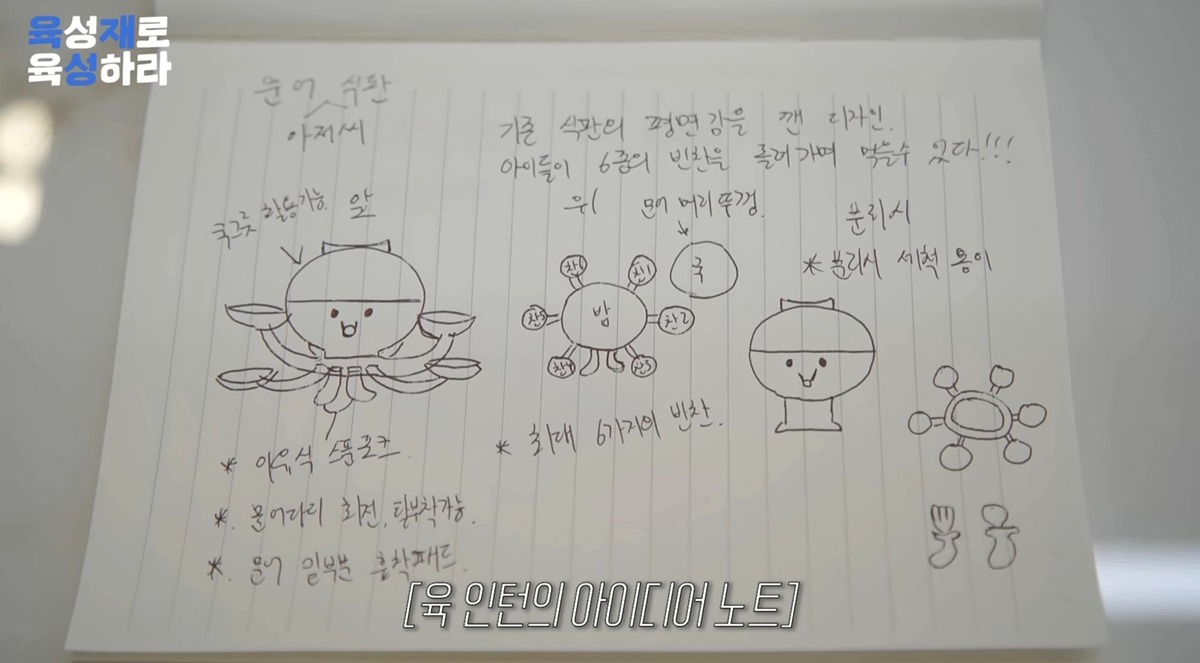 육성재로
육성하라
문어 식판
아저씨
기존 식판의 평면감을 깬 디자인.
아이들이 6종의 반찬을 돌려가며 먹을수 있다!!!
국그릇 활용가능.
앞
위
문어 머리뚜껑.
분리시
* 분리시 세척 용이
국
찬6
찬1
찬5
밥
찬2
찬4
찬3
* 이유식 스푼포크.
* 최대 6가지의 반찬.
*. 문어다리 회전, 탈부착가능.
*. 문어 밑부분 흡착패드.
[육 인턴의 아이디어 노트]